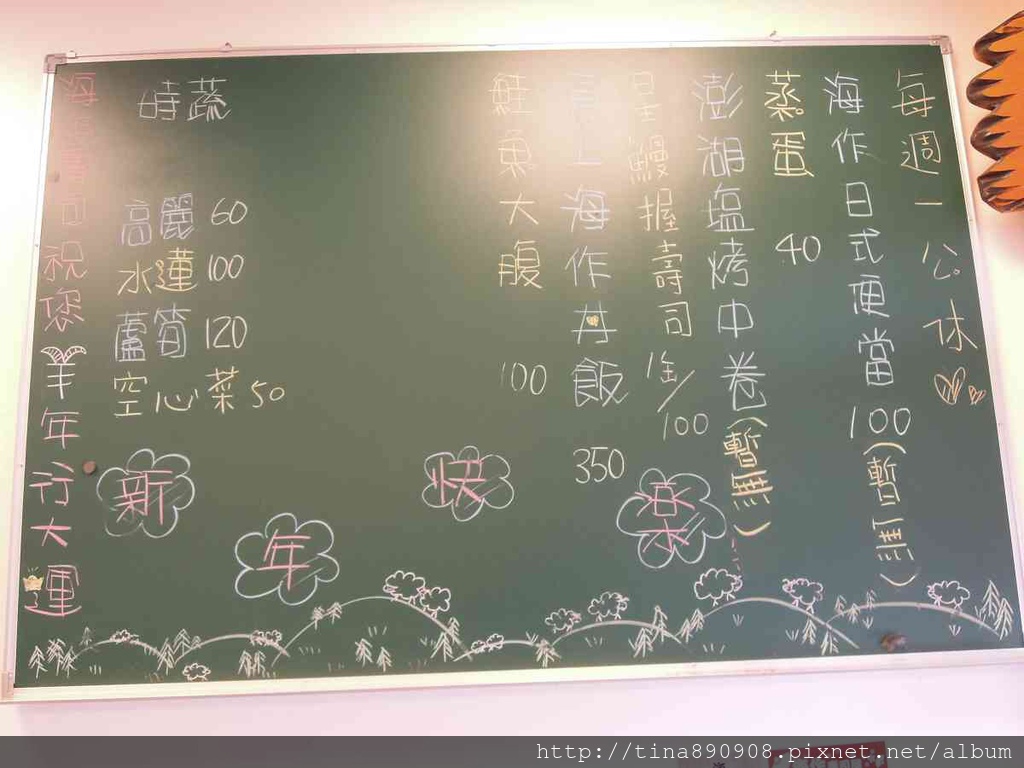 每週一公休
海作日式便當100(暫無)
蒸蛋 40
澎湖塩烤中卷(暫無)
星鰻握壽司 100
上海作丼飯 350
鮭魚大腹 100
時蔬
高麗 60
水蓮 100
蘆筍 120
空心菜 50
海壽司祝您羊年行大運
新年快樂
http://tina890908.pixnet.net/album